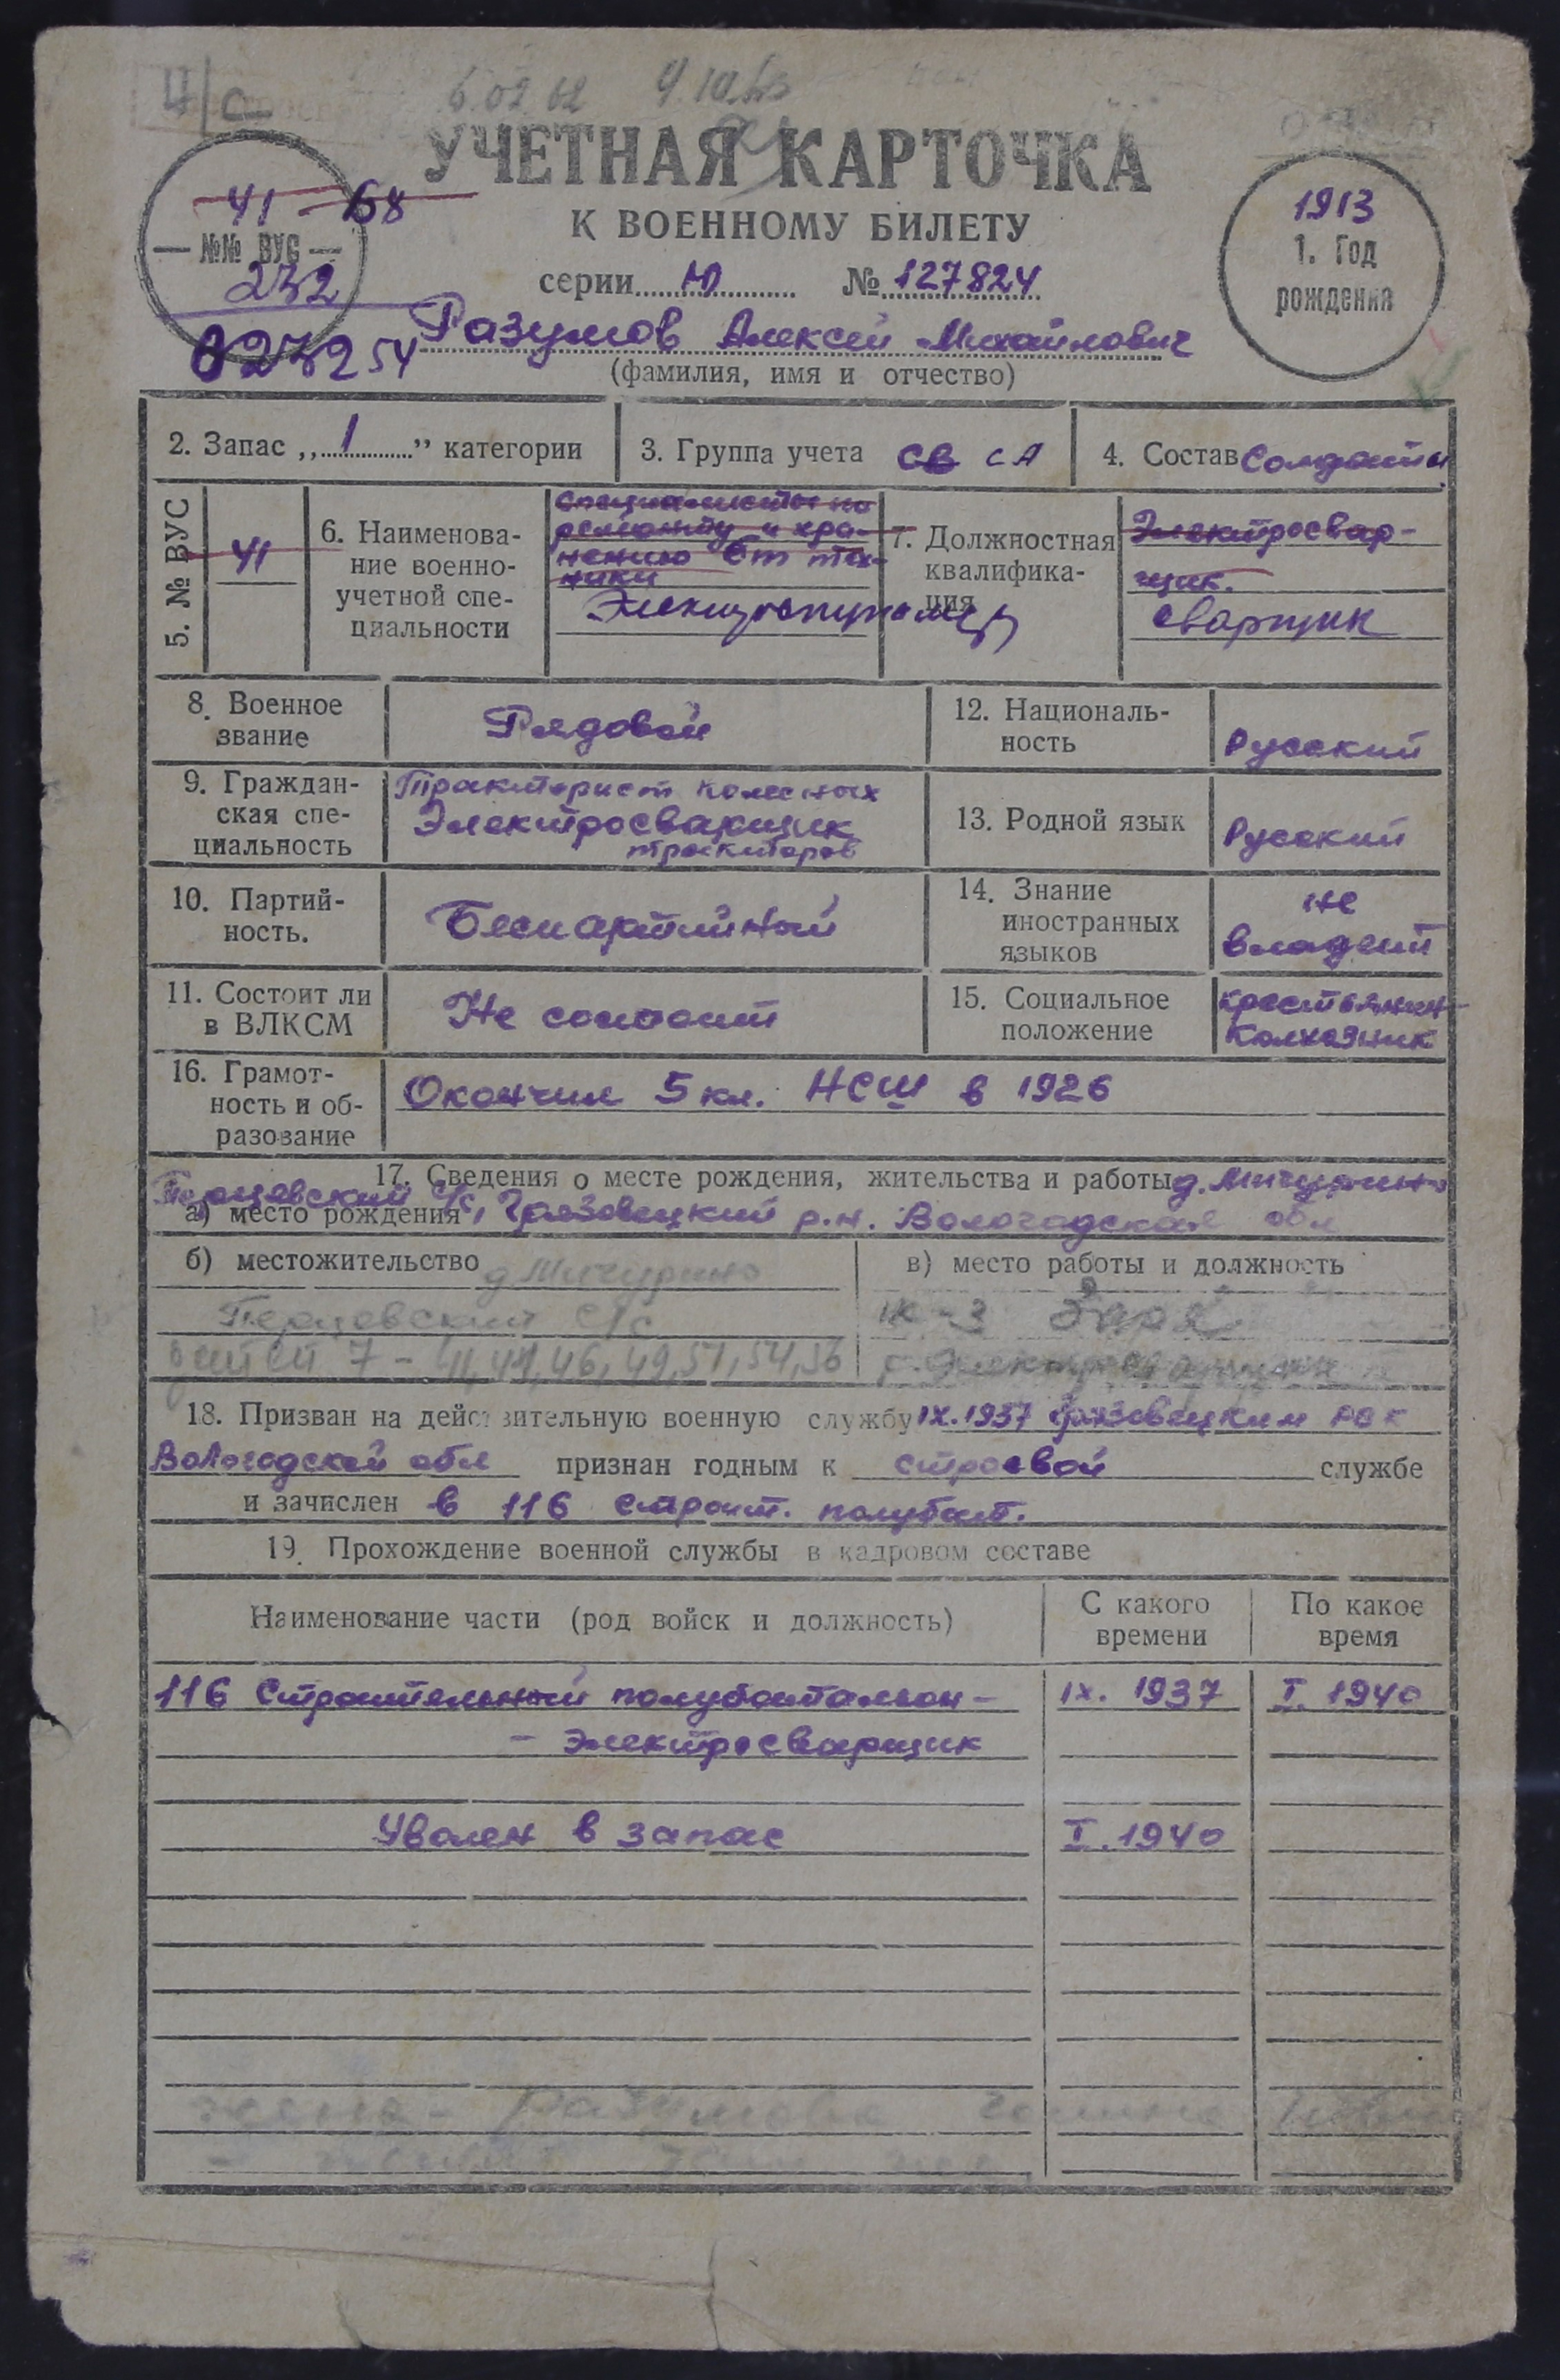 Ч/С 6.02.62 9.10.63
УЧЕТНАЯ КАРТОЧКА
К ВОЕННОМУ БИЛЕТУ
серии Ю № 127824
41 - 68
— №№ ВУС —
232
023254
1913
1. Год
рождения
Разумов Алексей Михайлович
(фамилия, имя и отчество)
2. Запас „1” категории
3. Группа учета СВ СА
4. Состав Солдаты
5. № ВУС
41
6. Наименова-
ние военно-
учетной спе-
циальности
Специалисты по
ремонту и хра-
нению БТ тех-
ники
7. Должностная
квалифика-
ция
Электросвар-
щик.
сварщик
8. Военное
звание
Рядовой
12. Националь-
ность
Русский
9. Граждан-
ская спе-
циальность
Тракторист колесных
Электросварщик
тракторов
13. Родной язык
Русский
10. Партий-
ность.
Беспартийный
14. Знание
иностранных
языков
не
владеет
11. Состоит ли
в ВЛКСМ
Не состоит
15. Социальное
положение
крестьянин-
колхозник
16. Грамот-
ность и об-
разование
Окончил 5 кл. НСШ в 1926
17. Сведения о месте рождения, жительства и работы д. Мичурино
Перцевский с/с,
а) место рождения Грязовецкий р.н. Вологодская обл
б) местожительство д Мичурино
Перцевский с/с
детей 7 - 41, 44, 46, 49, 51, 54, 56
в) место работы и должность
к-з Заря
18. Призван на действительную военную службу IX.1937 Грязовецким РВК
Вологодской обл признан годным к строевой службе
и зачислен в 116 строит. полубат.
19. Прохождение военной службы в кадровом составе
Наименование части (род войск и должность)
С какого
времени
По какое
время
116 Строительный полубатальон - IX. 1937 I. 1940
- электросварщик
Уволен в запас I. 1940
жена - Разумова